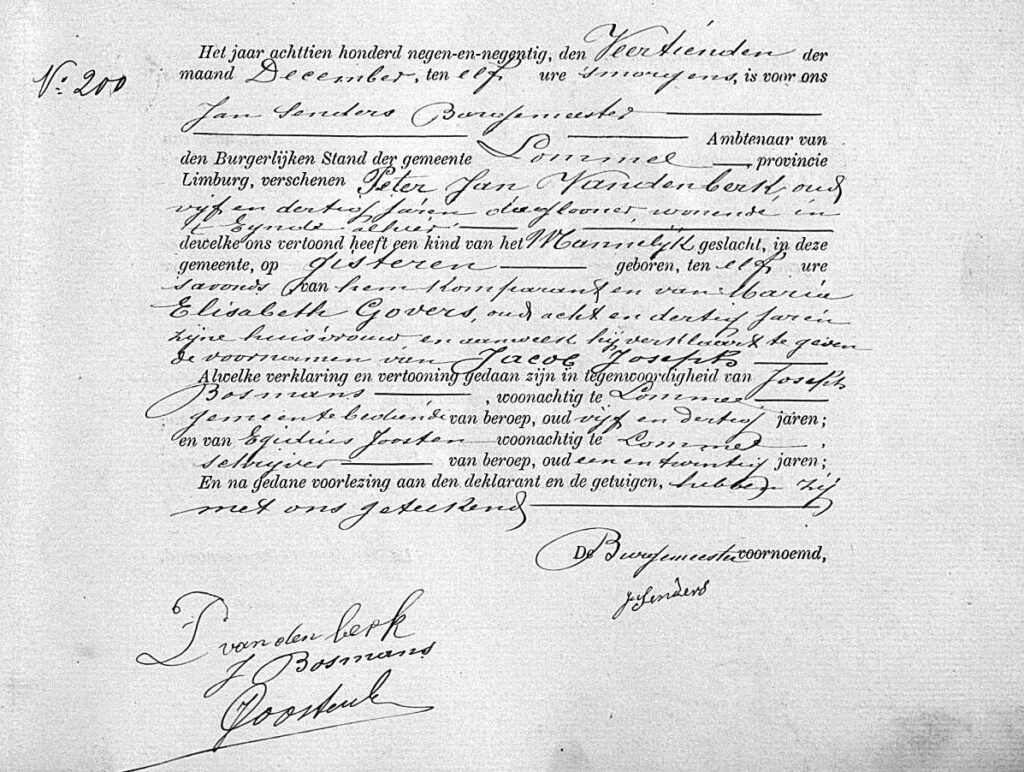 Nº 200
Het jaar achttien honderd negen-en-negentig, den Veertienden der
maand December, ten elf ure 'smorgens, is voor ons
Jan Senders Burgemeester
Ambtenaar van
den Burgerlijken Stand der gemeente Lommel provincie
Limburg, verschenen Peter Jan Vandenberk, oud
vijf en dertig jaren daglooner, wonende in
't Eynde alhier
dewelke ons vertoond heeft een kind van het Mannelijk geslacht, in deze
gemeente, op gisteren geboren, ten elf ure
savonds van hem komparant en van Maria
Elisabeth Govers, oud acht en dertig jaren
zijne huisvrouw en aanwelk hij verklaart te geven
de voornamen van Jacob Joseph
Alwelke verklaring en vertooning gedaan zijn in tegenwoordigheid van Joseph
Bosmans, woonachtig te Lommel
gemeentebediende van beroep, oud vijf en dertig jaren;
en van Egidius Joosten woonachtig te Lommel,
schrijver van beroep, oud een en twintig jaren;
En na gedane voorlezing aan den deklarant en de getuigen, hebben zij
met ons geteekend
De Burgemeester voornoemd,
J Senders
P van den berk
J Bosmans